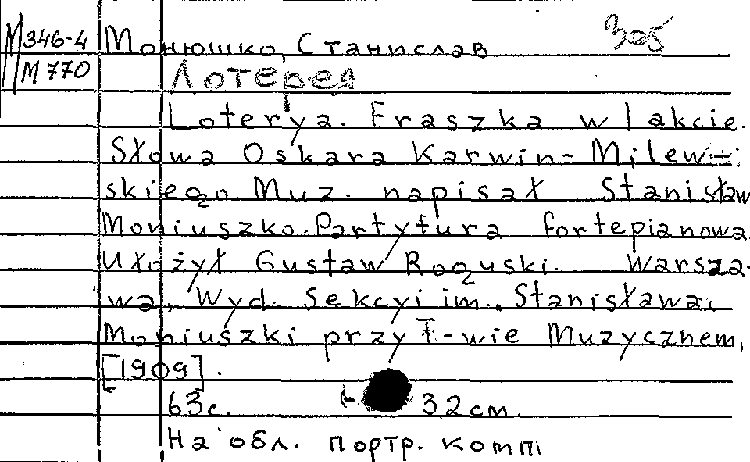 М346-4 Монюшко, Станислав 305
М770 Лотерея
Loterya. Fraszka w 1 akcie.
Słowa Oskara Karwin-Milew-
skiego Muz. napisał Stanisław
Moniuszko. Partytura fortepianowa
Ułożył Gustaw Roguski. Warsza-
wa, Wyd. Sekcyi im. Stanisława
Moniuszki przy T-wie Muzycznem,
[1909].
63с. 32см.
На обл. портр. комп.